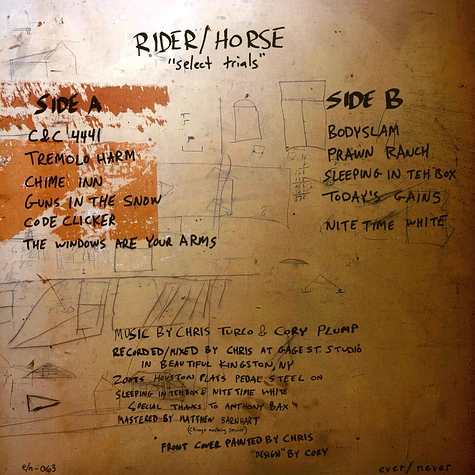 RIDER/HORSE
"select trials"
SIDE A
C&C 4441
TREMOLO HARM
CHIME INN
GUNS IN THE SNOW
CODE CLICKER
THE WINDOWS ARE YOUR ARMS
SIDE B
BODYSLAM
PRAWN RANCH
SLEEPING IN TEH BOX
TODAY'S GAINS
NITE TIME WHITE
MUSIC BY CHRIS TURCO & CORY PLUMP
RECORDED/MIXED BY CHRIS AT GAGE ST. STUDIO
IN BEAUTIFUL KINGSTON, NY
ZOOTS HOUSTON PLAYS PEDAL STEEL ON
SLEEPING IN TEH BOX & NITE TIME WHITE
SPECIAL THANKS TO ANTHONY BAX
MASTERED BY MATTHEW BARNHART
(Chicago mastering service)
FRONT COVER PAINTED BY CHRIS
"DESIGN" BY CORY
e/n-063
ever/never